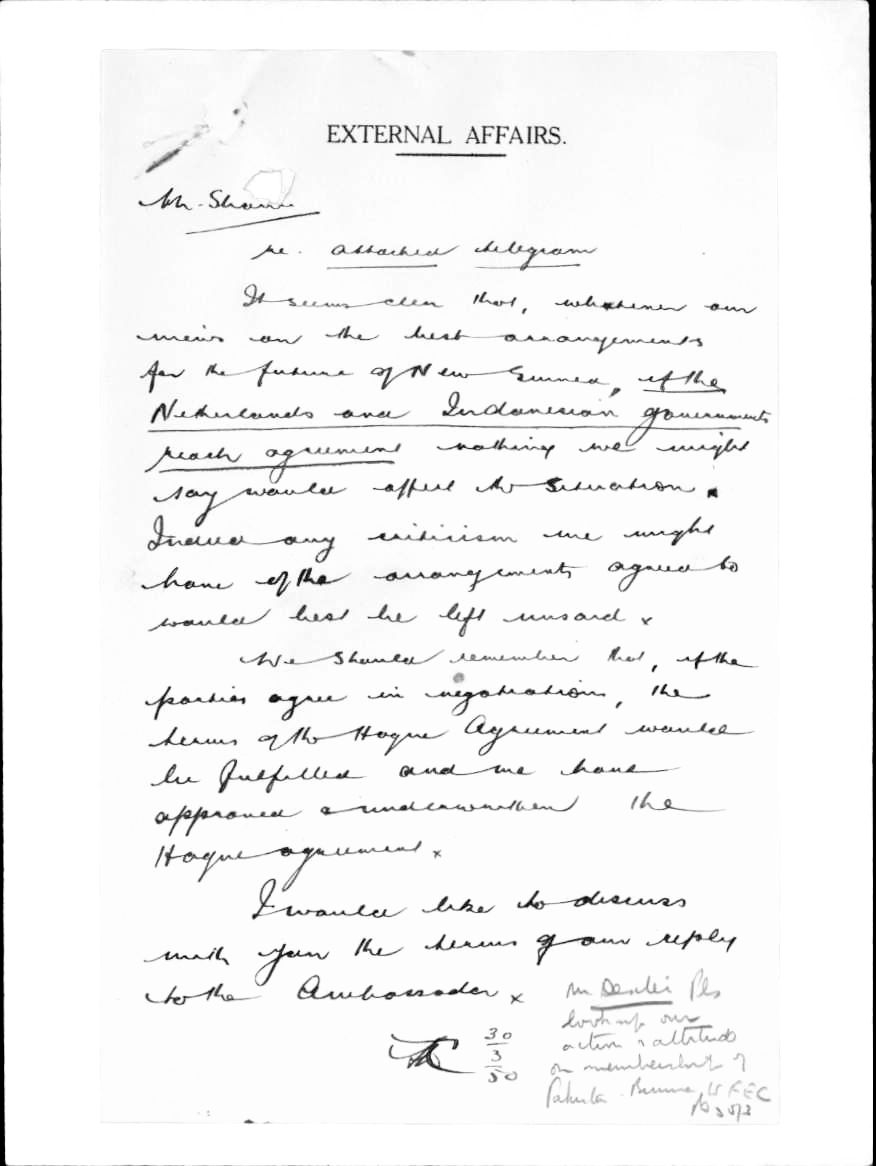 EXTERNAL AFFAIRS.
Mr. Shann
re. attached telegram
It seems clear that, whatever our
views on the best arrangements
for the future of New Guinea, if the
Netherlands and Indonesian governments
reach agreement nothing we might
say would affect the situation.
Indeed any criticism we might
have of the arrangements agreed to
would best be left unsaid x
We should remember that, if the
parties agree in negotiations, the
terms of the Hague Agreement would
be fulfilled and we have
approved & underwritten the
Hague agreement x
I would like to discuss
with you the terms of our reply
to the Ambassador x
30
3
50
Mr Pls
look up our
action & attitude
on membership of
Pakistan Burma, to FEC